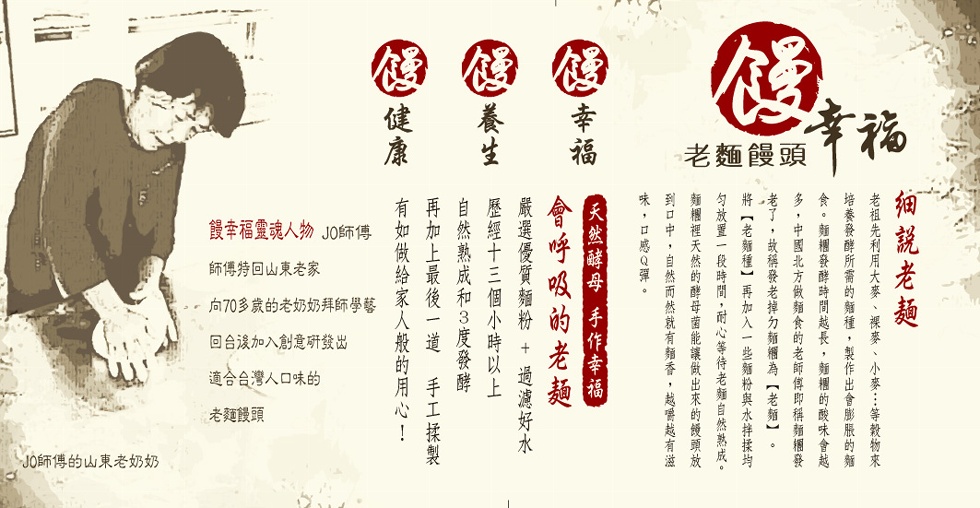 饅幸福
老麵饅頭
細説老麵
老祖先利用大麥、裸麥、小麥…等穀物來
培養發酵所需的麵種，製作出會膨脹的麵
食。麵糰發酵時間越長，麵糰的酸味會越
多，中國北方做麵食的老師傅即稱麵糰發
老了，故稱發老掉勾麵糰為【老麵】。
將【老麵種】再加入一些麵粉與水拌揉均
勻放置一段時間，耐心等待老麵自然熟成。
麵糰裡天然的酵母菌能讓做出來的饅頭放
到口中，自然而然就有麵香，越嚼越有滋
味，口感Q彈。
饅幸福
饅養生
饅健康
天然酵母 手作幸福
會呼吸的老麵
嚴選優質麵粉 + 過濾好水
歷經十三個小時以上
自然熟成和3度發酵
再加上最後一道 手工揉製
有如做給家人般的用心！
饅幸福靈魂人物 JO師傅
師傅特回山東老家
向70多歲的老奶奶拜師學藝
回台後加入創意研發出
適合台灣人口味的
老麵饅頭
JO師傅的山東老奶奶